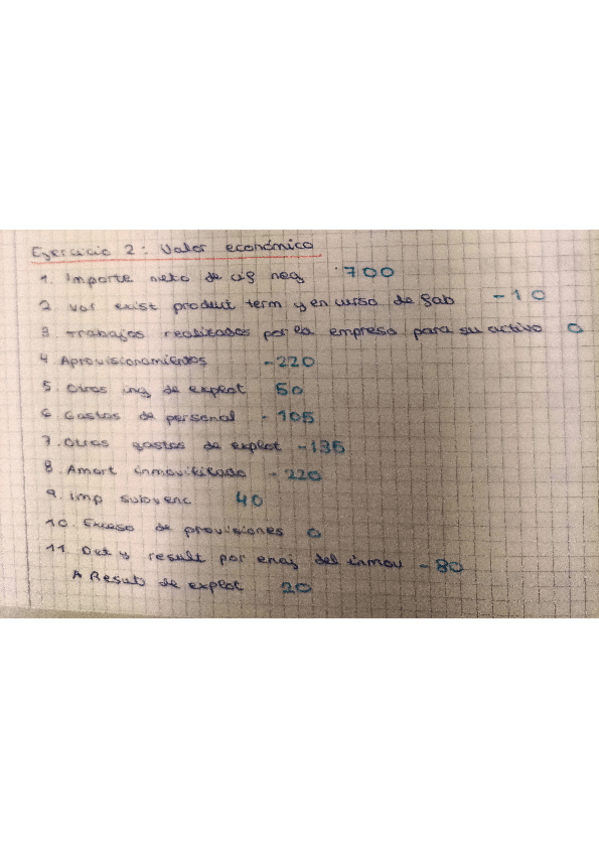 Ejercicio 2: Valor económico
1. Importe neto de cif neg 700
2 Var exist product term y en curso de fab -10
3. Trabajos realizados por la empresa para su activo 0
4. Aprovisionamientos -220
5. Otros ing de explot 50
6 Gastos de personal -105
7. Otros gastos de explot -135
8. Amort inmovilizado -220
9. Imp subvenc 40
10. Exceso de provisiones 0
11. Det y result por enaj del inmov -80
A Result de explot 20